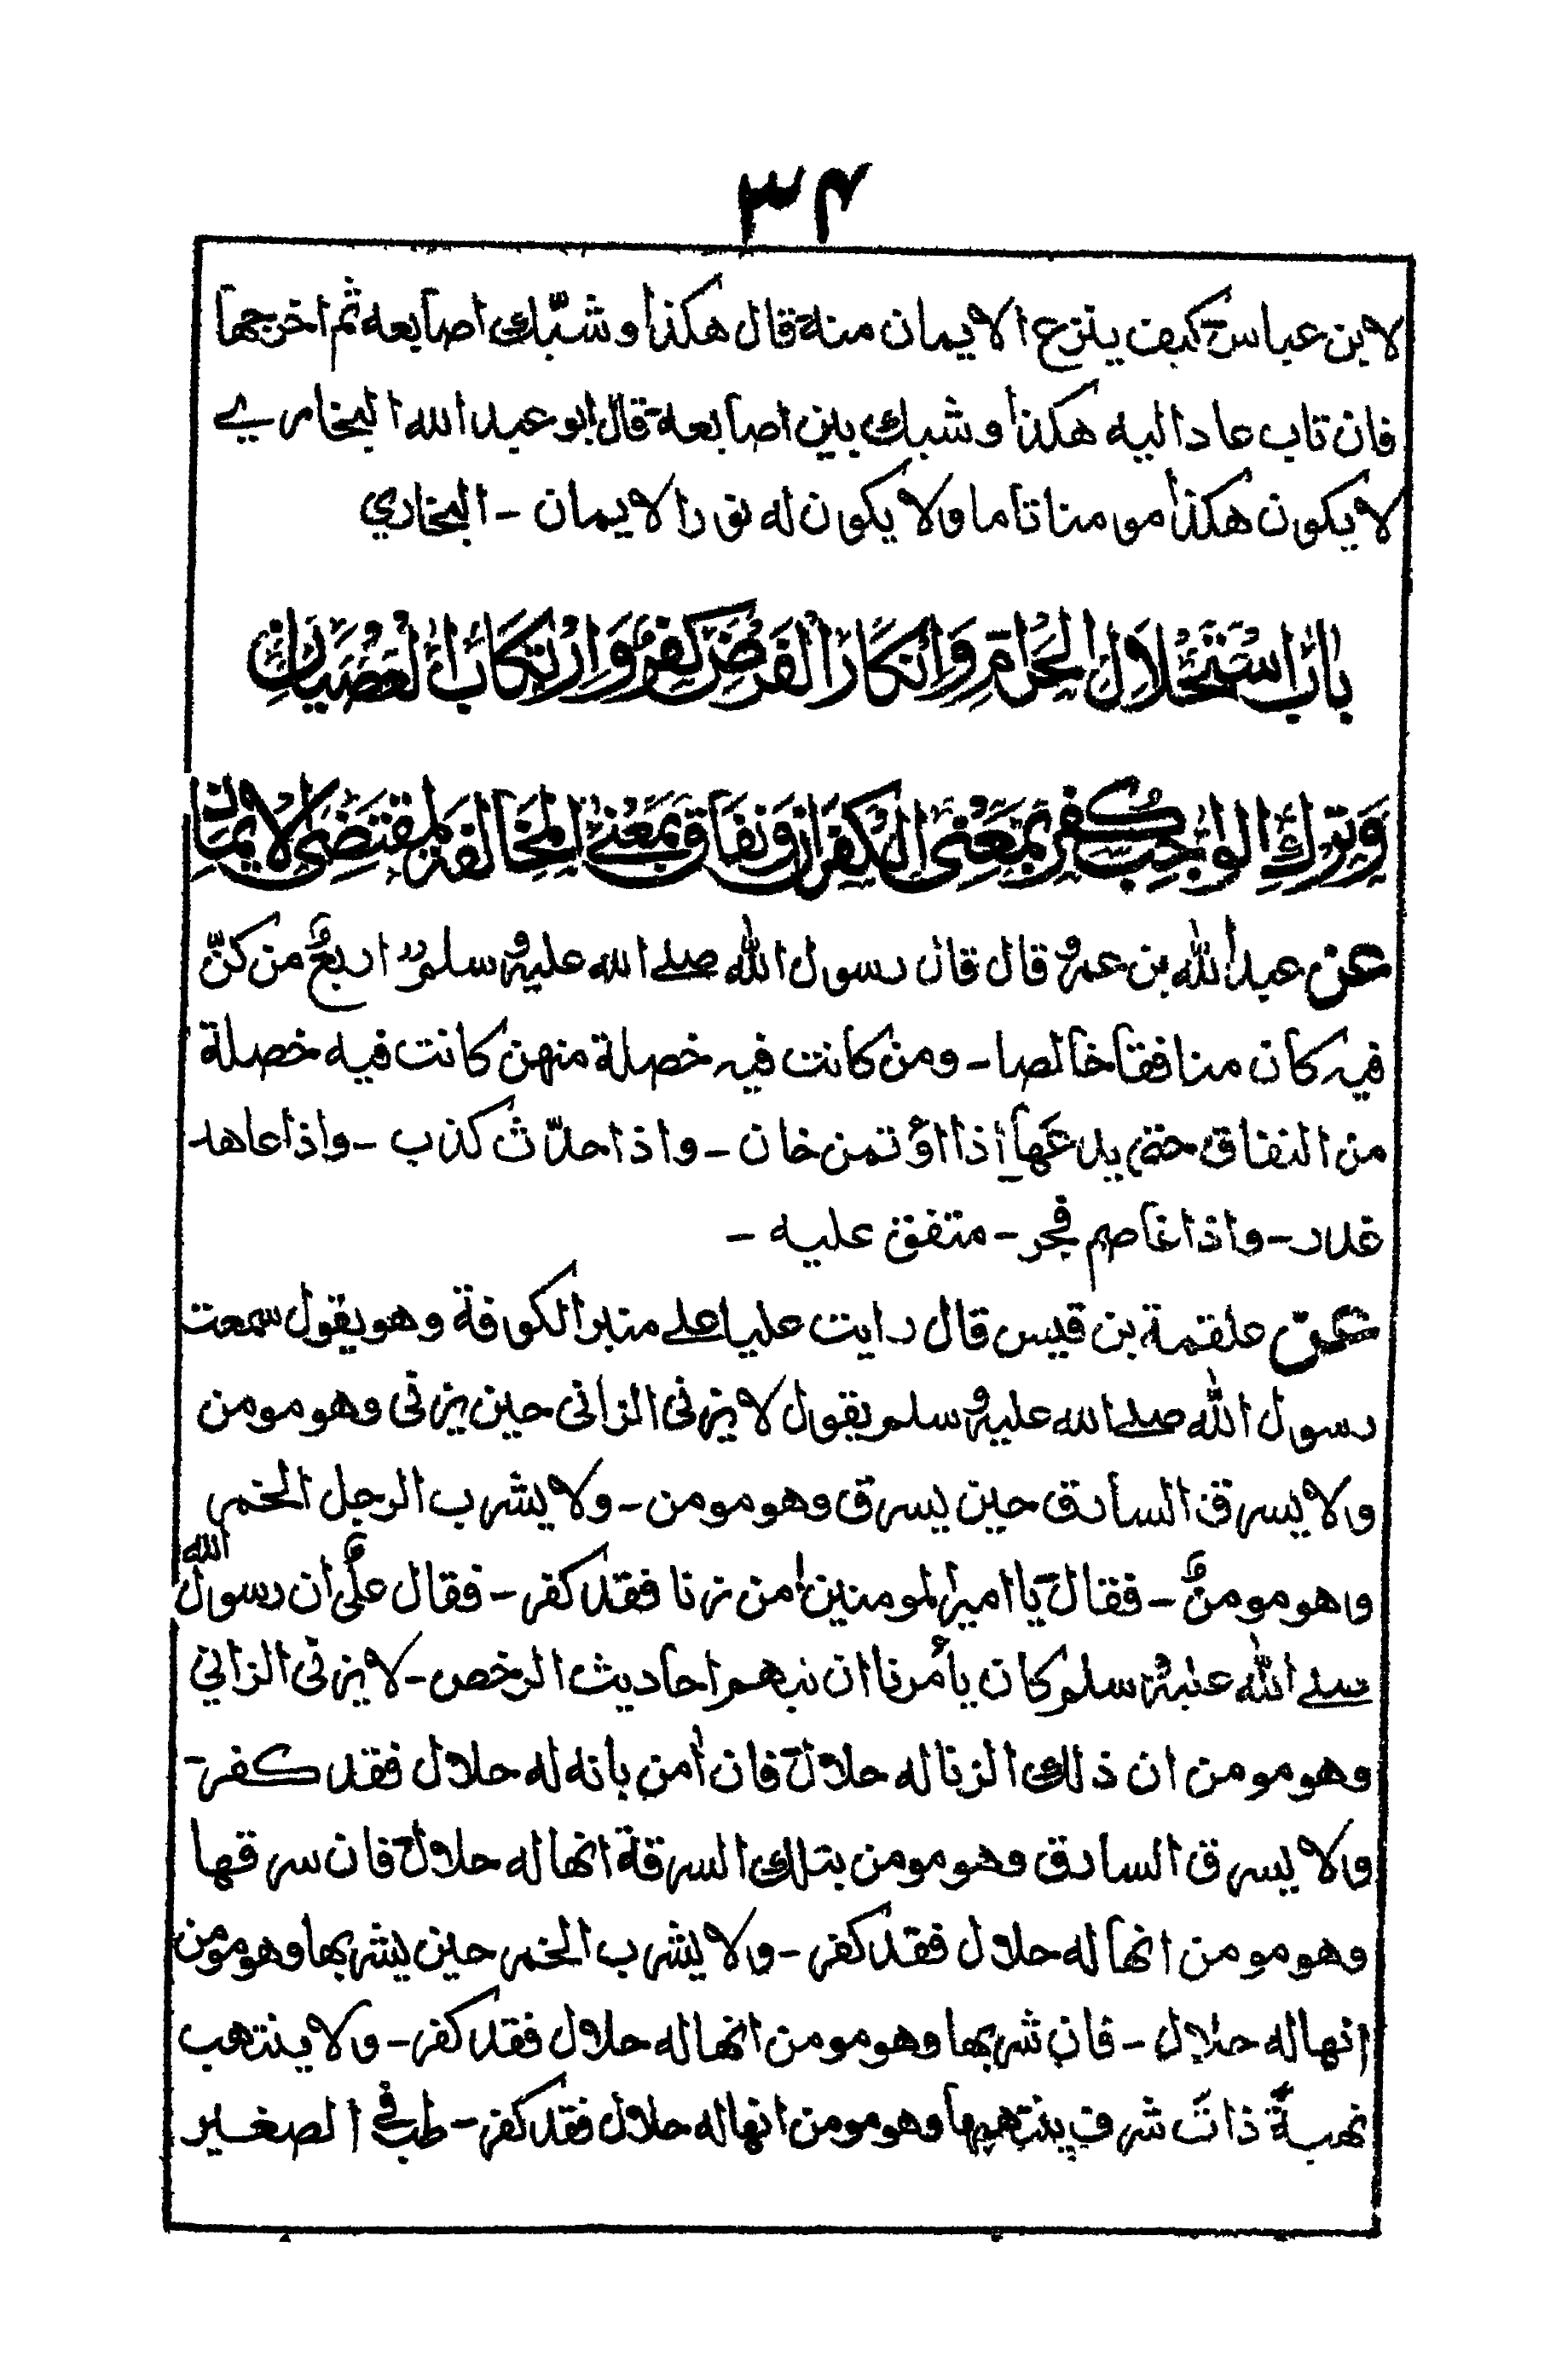 ٣٤
لابن عباسؓ كيف ينزع الايمان منه قال هكذا وشبّك اصابعه ثم اخرجها
فان تاب عاد اليه هكذا وشبك بين اصابعه قال ابو عبد الله البخاري
لا يكون هكذا مومنا تاما ولا يكون له نور الايمان - البخاري
باب استحلال الحرام وانكار الفرض كفر وارتكاب العصيان
وترك الواجب كفر بمعنى الكفران ونفاق بمعنى المخالفة لمقتضى الايمان
عن عبد الله بن عمرو قال قال رسول الله صلے الله عليه وسلم اربع من كنّ
فيه كان منافقا خالصا - ومن كانت فيه خصلة منهن كانت فيه خصلة
من النفاق حتى يدعها اذا اؤتمن خان - واذا حدّث كذب - واذا عاهد
غدر - واذا خاصم فجر - متفق عليه -
عن علقمة بن قيس قال رايت عليا علے منبر الكوفة وهو يقول سمعت
رسول الله صلے الله عليه وسلم يقول لا يزنى الزانى حين يزنى وهو مومن
ولا يسرق السارق حين يسرق وهو مومن - ولا يشرب الرجل الخمر
وهو مومن - فقال يا امير المومنين من زنا فقد كفر - فقال علىؓ ان رسول الله
صلے الله عليه وسلم كان يأمرنا ان نبهم احاديث الرخص - لا يزنى الزاني
وهو مومن ان ذلك الزنا له حلال فان اٰمن بانه له حلال فقد كفر -
ولا يسرق السارق وهو مومن بتلك السرقة انها له حلال فان سرقها
وهو مومن انها له حلال فقد كفر - ولا يشرب الخمر حين يشربها وهو مومن
انها له حلال - فان شربها وهو مومن انها له حلال فقد كفر - ولا ينتهب
نهبةً ذات شرف ينتهبها وهو مومن انها له حلال فقد كفر - طب فى الصغير